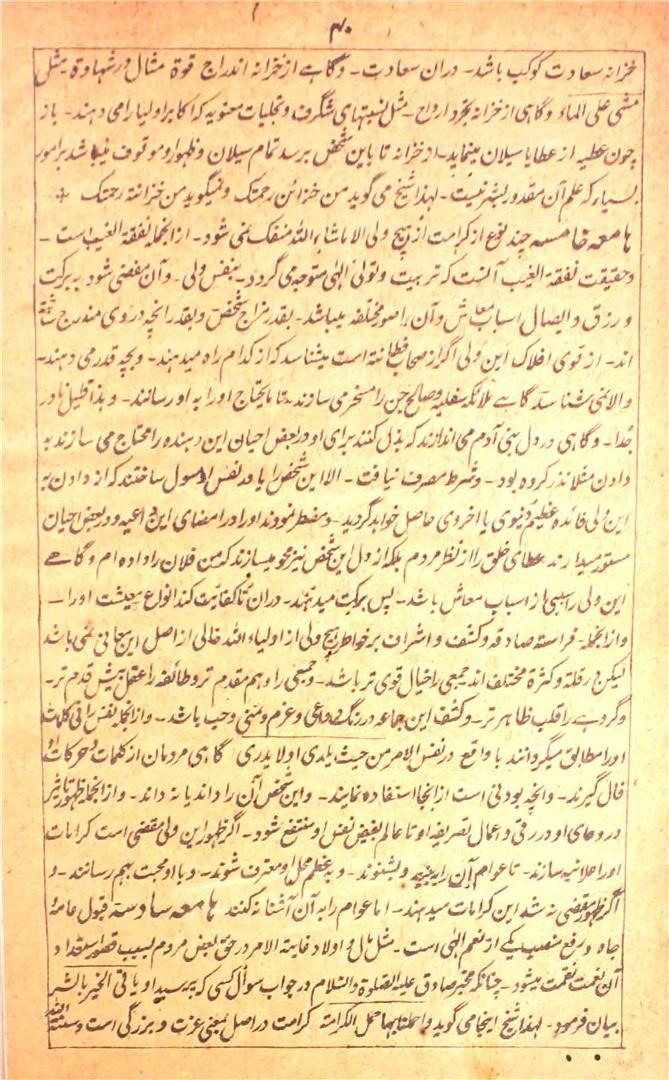 ۴۰
خزانه سعادت کوکب باشد۔ دران سعادت۔ وگاہے از خزانه اندراج قوة مثال در شهادة مثل
مشی علی الماء وگاہی از خزانه تجرد ارواح۔ مثل نسبتهای شگرف وتجلیات معنویه که اکابر اولیا را می دهند۔ باز
چون عطیه از عطایا سیلان مینماید۔ از خزانه تا باین شخص برسد تمام سیلان وظهور او موقوف میباشد بر امور
بسیار که علم آن مقدور بشر نیست۔ لهذا شیخ می گوید من خزائن رحمتک ونمیگوید من خزانته رحمتک
هامعه خامسه چند نوع از کرامت از هیچ ولی الا ماشاء الله منفک نمی شود۔ از انجا نفقة الغیب است۔
وحقیقت نفقة الغیب آنست که تربیت وتولی الهی متوجه می گردد۔ بنفس ولی۔ وآن مفضی شود به برکت
ورزق وایصال اسباب معاش وآن را صور مختلفه میباشد۔ بقدر مزاج شخص وبقدر آنچه در وی مندرج ساخته
اند۔ از قوی افلاک این ولی اگر از اصحاب فطانته است میشناسد که از کدام راه میدهند۔ وبچه قدر می دهند۔
والا نمی شناسد گاهے ملائکه سفلیه وصالح جن را مسخر می سازند۔ تا مایحتاج او را به او رسانند۔ وهذا قلیل نادر
جدا۔ وگاہی در دل بنی آدم می اندازند که بذل کنند برای او در بعض احیان این دهنده را محتاج می سازند به
دادن مثلا نذر کرده بود۔ وشرط مصرف نیافت۔ الا این شخص را یا در نفس او مسول ساختند که از دادن به
این ولی فائده عظیم دنیوی یا اخروی حاصل خواهد گردید۔ ومضطر نمودند او را در امضای این داعیه ودر بعض احیان
مستور میدارند عطای خلق را از نظر مردم بلکه از دل این شخص نیز محو میسازند که من فلان را داده ام وگاهے
این ولی را سببی از اسباب معاش باشد۔ پس برکت میدهند۔ دران تا کفایت کند انواع معیشت او را۔
واز انجمله۔ فراسته صادقه وکشف واشراف بر خواطر هیچ ولی از اولیاء الله خالی از اصل این معانی نمی باشد
لیکن در قلة وکثرة مختلف اند جمعی را خیال قوی تر باشد۔ وجمعی را وهم مقدم تر وطائفه را عقل پیش قدم تر۔
وگروهے را قلب ظاهر تر۔ وکشف این جماعه در رنگ دواعی وعزم ومنی وحب باشد۔ واز انجا نفس را فی کلمات
او را مطابق میگردانند با واقع در نفس الامر من حیث یدری او لا یدری گاہی مردمان از کلمات وحرکات او
فال گیرند۔ وانچه بودنی است از انجا استفاده نمایند۔ واین شخص آن را داند یا نه داند۔ واز انجمله ظهور تاثیر
در دعای او در رقی واعمال تصریفه او تا عالم بفیض نفس او منتفع شود۔ اگر ظهور این ولی مقتضی است کرامات
او را علانیه سازند۔ تا عوام آن را به بینند وبشنوند۔ وبه عظم محل او معترف شوند۔ وبا او محبت بهم رسانند۔ و
اگر ظهور مقتضی نه شد این کرامات میدهند۔ اما عوام را به آن آشنا نه کنند هامعه سادسة قبول عامه
جاه ورفع منصب یکے از نعم الهی است۔ مثل مال واولاد غایته الامر در حق بعض مردم بسبب قصور استعداد
آن نعمت نقمت میشود۔ چنانکه مخبر صادق علیه الصلوة والسلام در جواب سوال کسی که پرسید او یاتی الخیر بالشر
بیان فرمود۔ لهذا شیخ اینجا می گوید واحملنا بها حمل الکرامته کرامت در اصل بمعنی عزت وبزرگی است وسنة الله